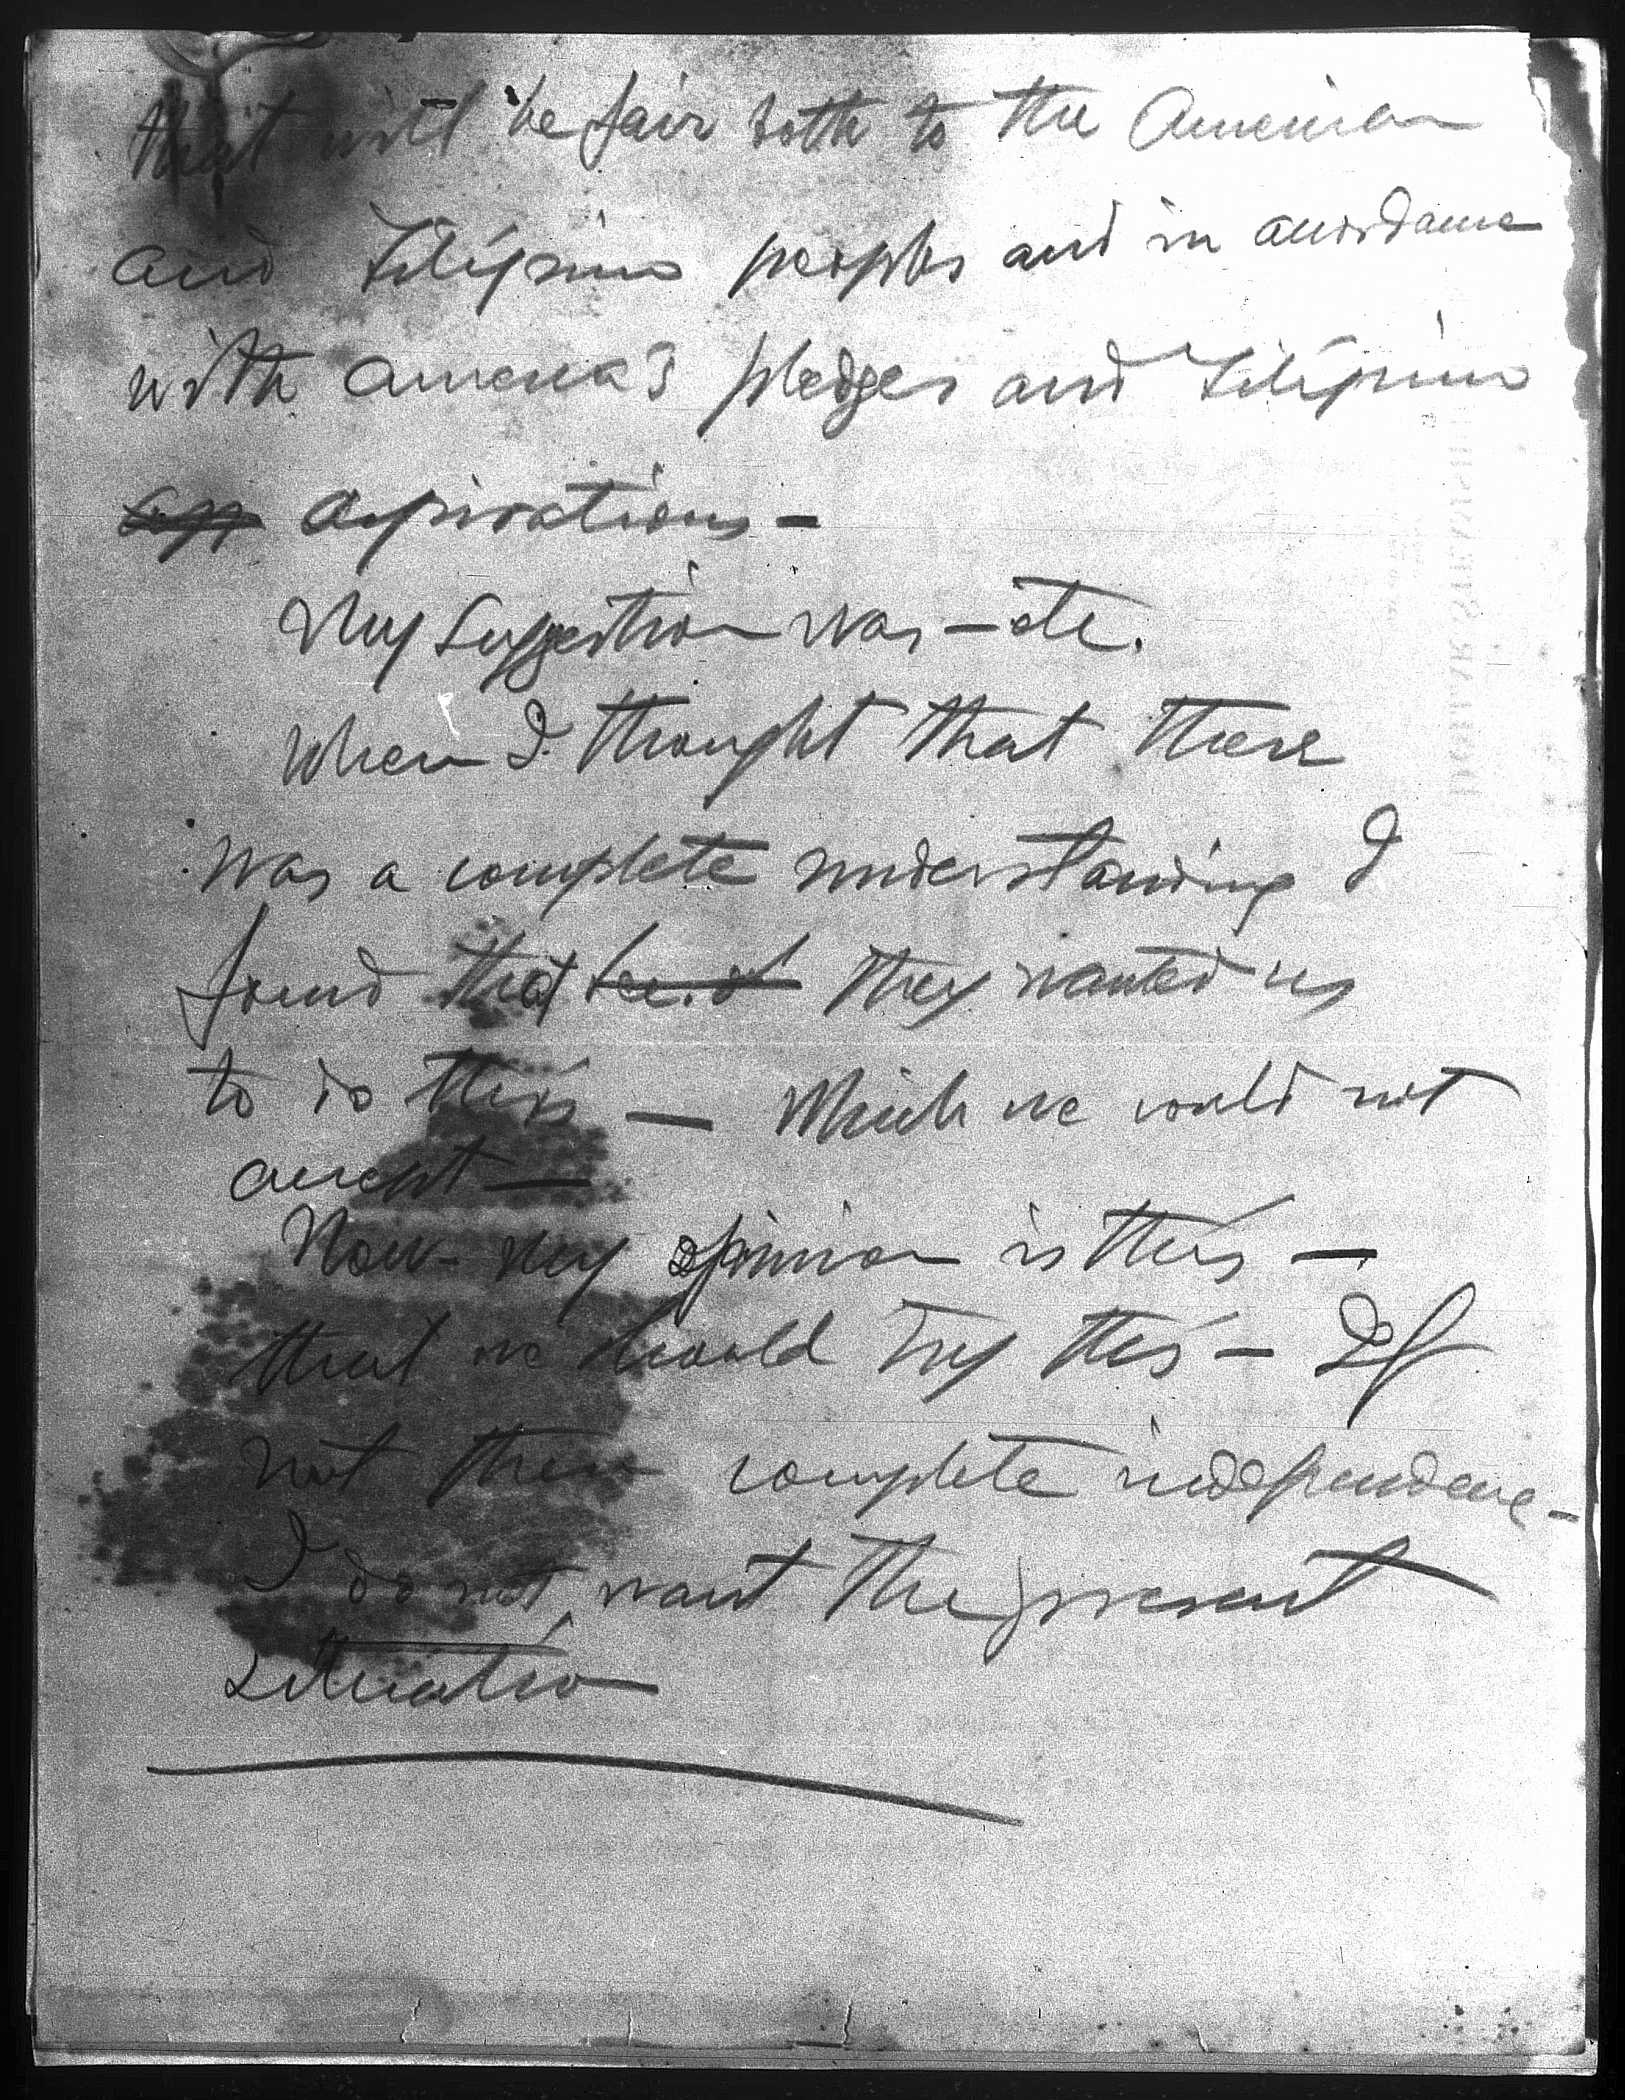 that will be fair both to the American
and Filipino peoples and in accordance
with America's pledges and Filipino
app aspirations -
My suggestion was - etc.
When I thought that there
was a complete understanding I
found that they wanted us
to do this — Which we could not
accept —
Now - my opinion is this —
that we should try this - If
not then complete independence -
I do not want the present
situation